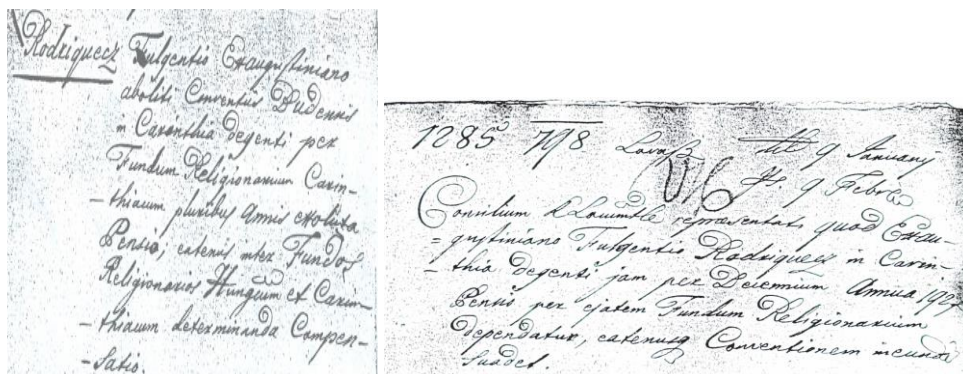 Rodriquecz Fulgentio Exaugustiniano
aboliti Conventûs Budensis
in Carinthia degenti per
Fundum Religionarium Carin-
-thiacum pluribus Annis exoluta
Pensio, catenus inter Fundos
Religionarios Hungcum et Carin-
-thiacum determinanda Compen-
-satio.
1285 798 9 January
9 Febr
Consilium repraesentat, quod Exau-
=gustiniano Fulgentio Rodriquecz in Carin-
-thia degenti jam per Decennium Annua
Pensio per ejatem Fundum Religionarium
dependatur, catenusq Conventionem ineundi
Suadet.